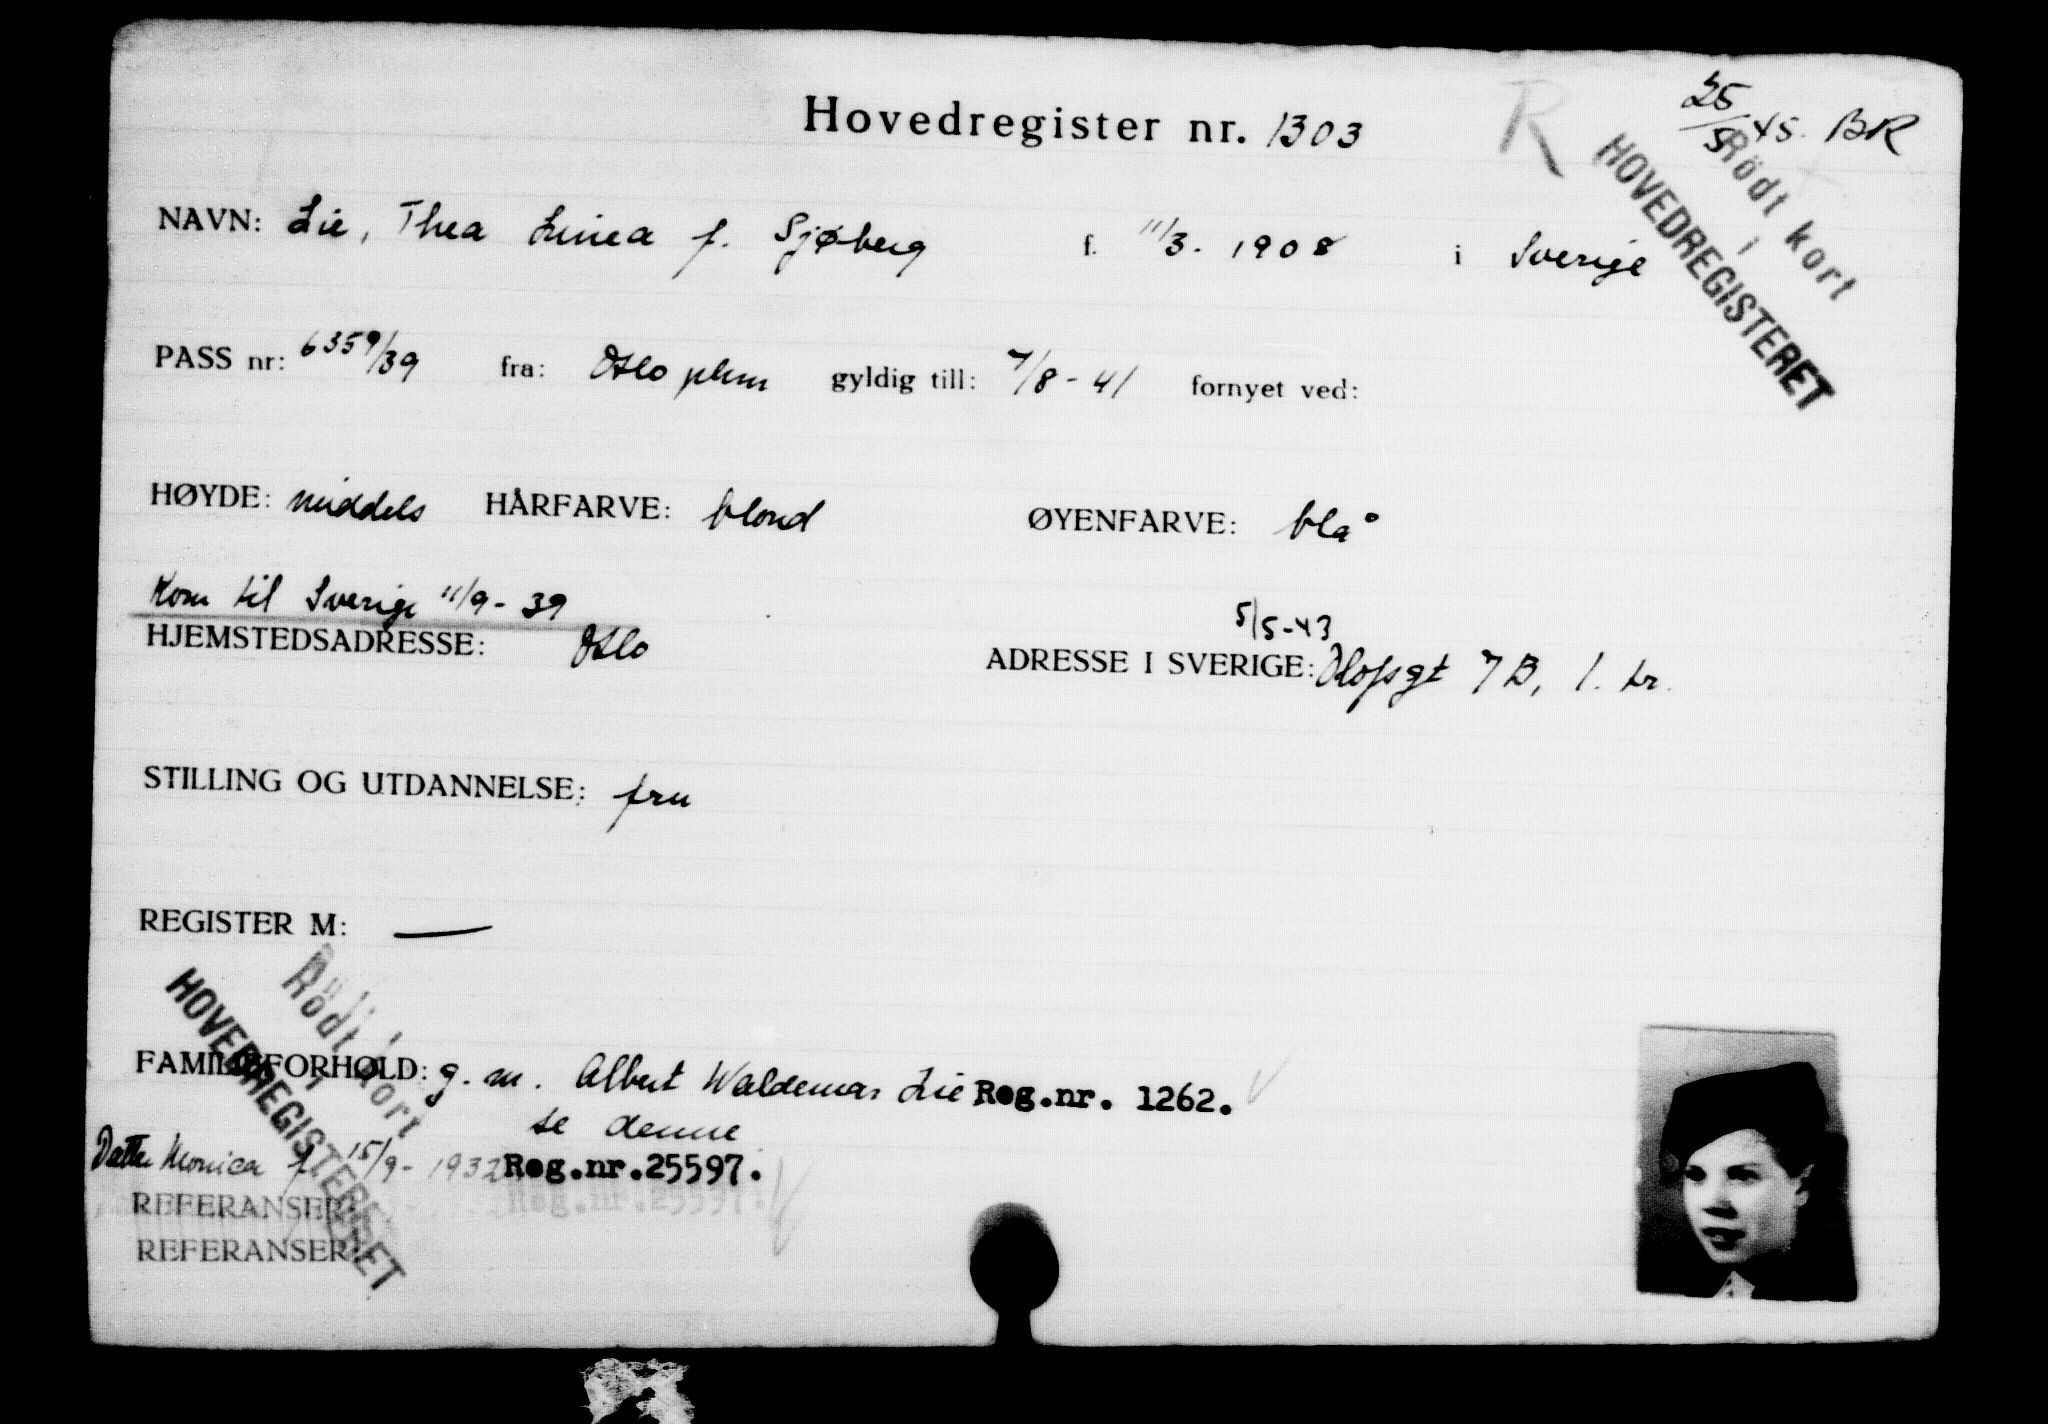 25/5 45. BR
R
Hovedregister nr. 1303
Rödt kort
i
HOVEDREGISTERET
NAVN: Lie, Thea Linea f. Sjøberg f. 11/3. 1908 i Sverige
PASS nr: 6359/39 fra: Oslo pkm gyldig till: 7/8 - 41 fornyet ved:
HØYDE: middels HÅRFARVE: blond ØYENFARVE: blå
Kom til Sverige 11/9 - 39
5/5-43
HJEMSTEDSADRESSE: Oslo ADRESSE I SVERIGE: Olofsgt 7 B, 1. tr.
STILLING OG UTDANNELSE: fru
REGISTER M: —
Rödt kort
i
HOVEDREGISTERET
FAMILIEFORHOLD: g. m. Albert Waldemar Lie Reg.nr. 1262.
se denne
Datter Monica f. 15/9 - 1932 Reg.nr.25597.
REFERANSER
REFERANSER